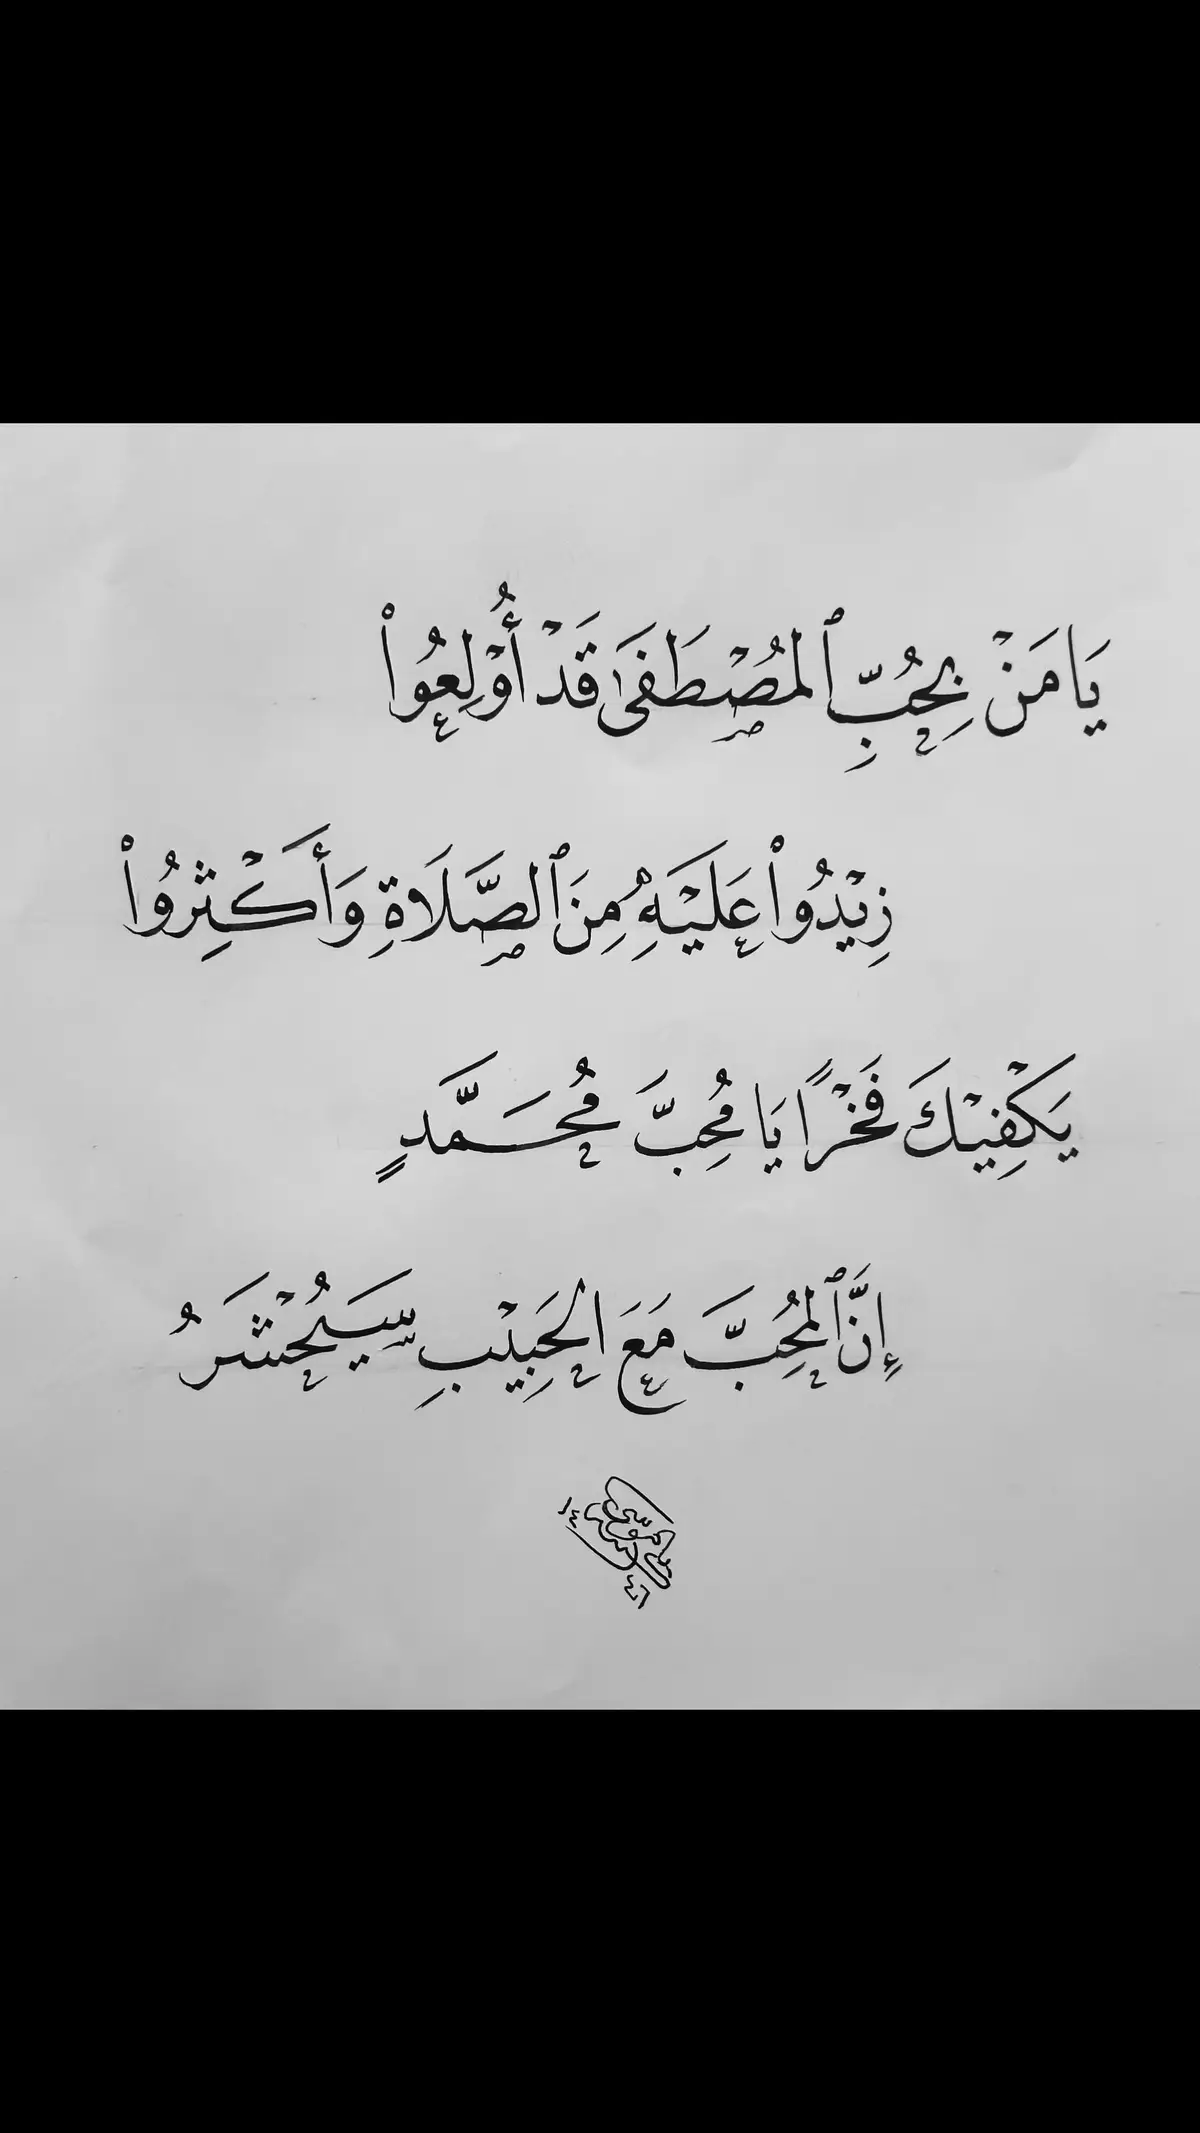 يَا مَنْ بِحُبِّ ٱلمُصْطَفَىٰ قَدْ أُوْلِعُواْ
زِيْدُواْ عَلَيْهِ مِنَ ٱلصَّلَاةِ وَأَكْثِرُواْ
يَكْفِيْكَ فَخْرًا يَا مُحِبَّ مُحَمَّدٍ
إِنَّ ٱلمُحِبَّ مَعَ الحَبِيْبِ سَيُحْشَرُ